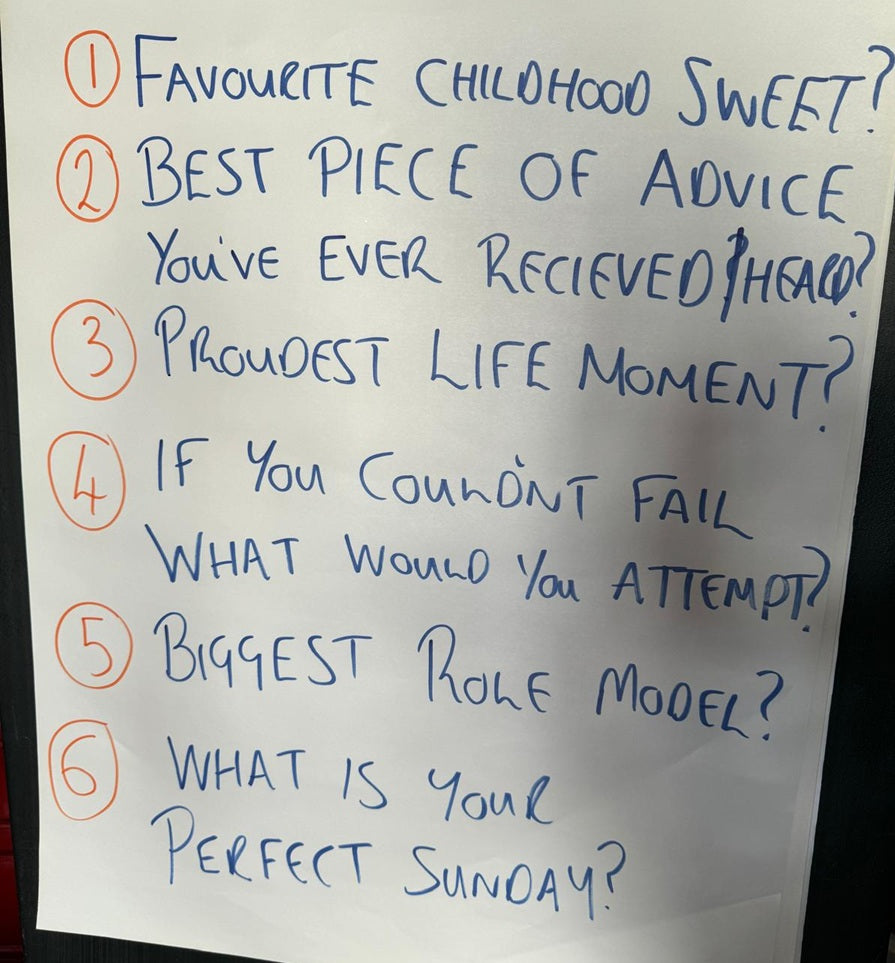 ① FAVOURITE CHILDHOOD SWEET?
② BEST PIECE OF ADVICE
YOU'VE EVER RECIEVED/HEARD?
③ PROUDEST LIFE MOMENT?
④ IF YOU COULD'NT FAIL
WHAT WOULD YOU ATTEMPT?
⑤ BIGGEST ROLE MODEL?
⑥ WHAT IS YOUR
PERFECT SUNDAY?